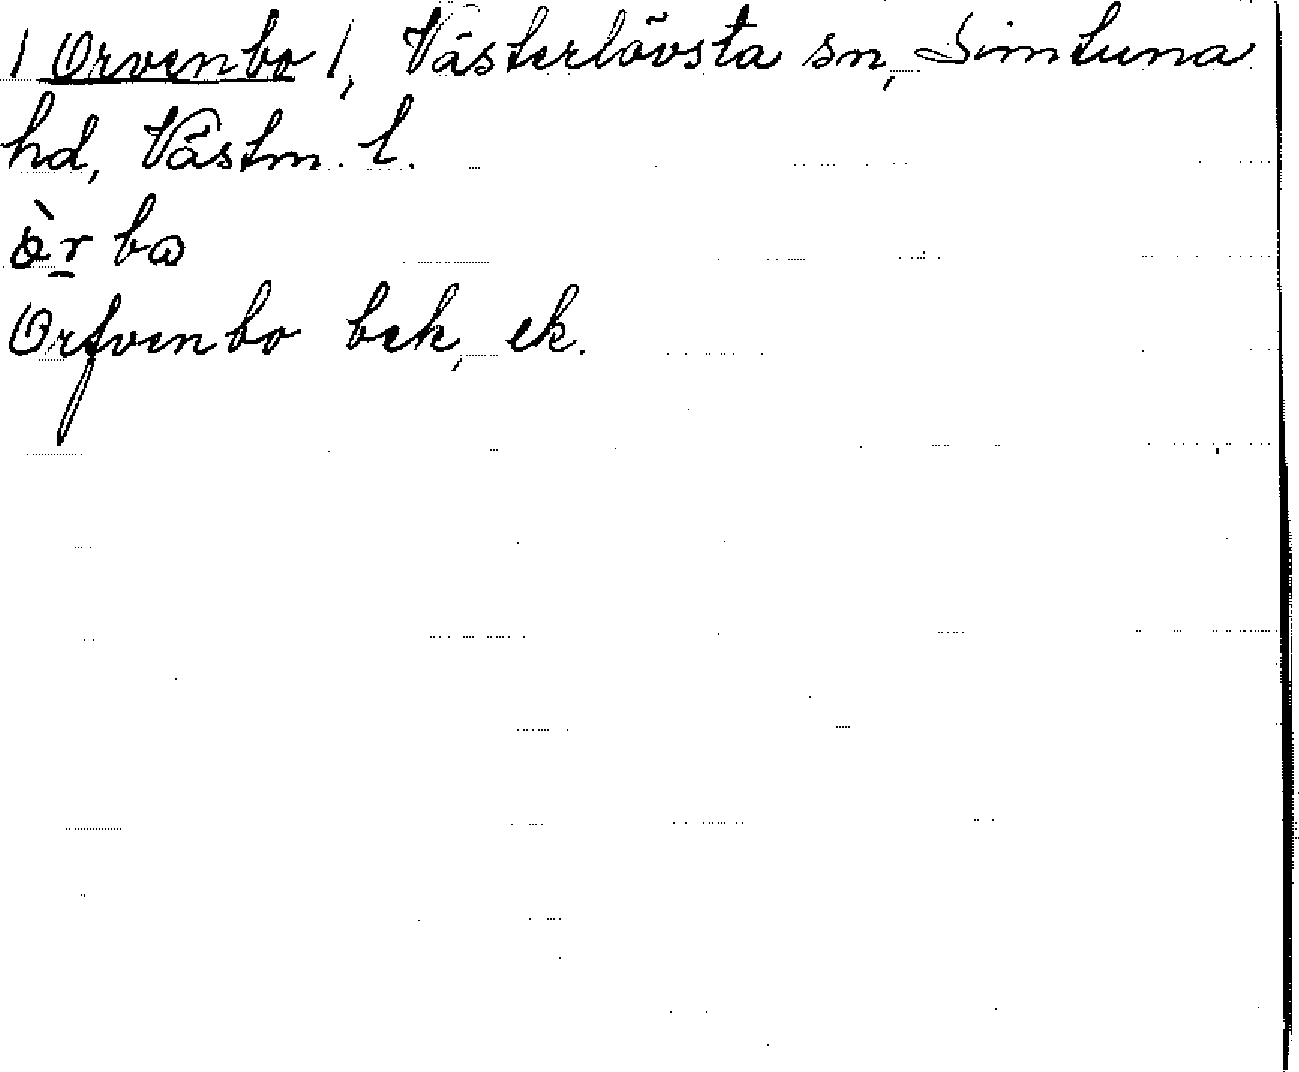 / Orvenbo /, Västerlövsta sn, Simtuna
hd, Västm. l.
Orfvenbo bek, ek.